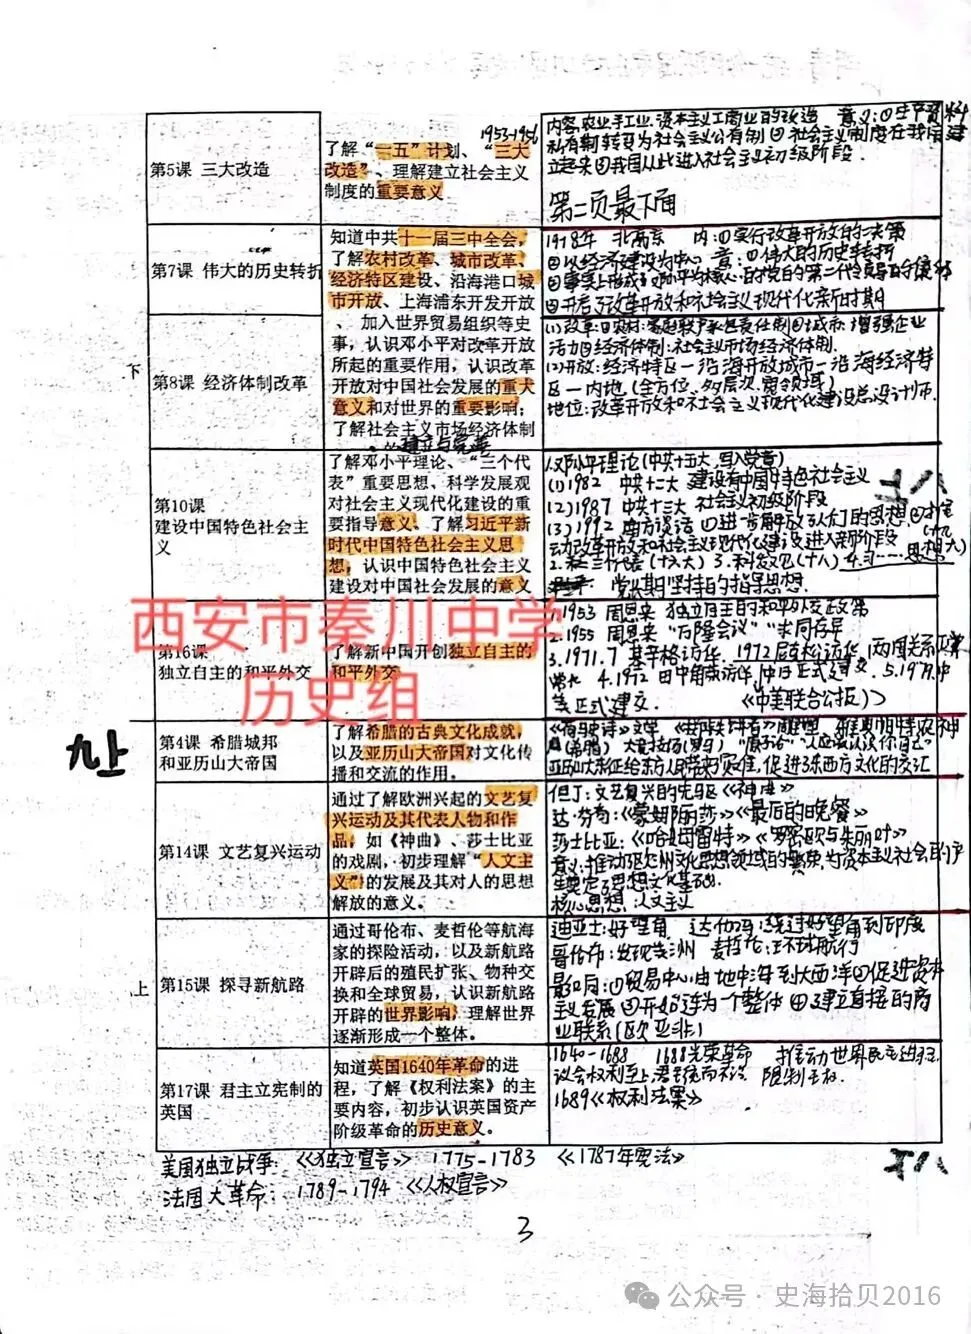 第5课 三大改造
1953-1956
了解“一五”计划、“三大
改造”、理解建立社会主义
制度的重要意义
内容:农业手工业.资本主义工商业的改造 意义:①生产资料
私有制转变为社会主义公有制 ②社会主义制度在我国建
立起来 ③我国从此进入社会主义初级阶段.
第二页最下面
下
第7课 伟大的历史转折
第8课 经济体制改革
知道中共十一届三中全会,
了解农村改革、城市改革、
经济特区建设、沿海港口城
市开放、上海浦东开发开放
、加入世界贸易组织等史
事,认识邓小平对改革开放
所起的重要作用,认识改革
开放对中国社会发展的重大
意义和对世界的重要影响;
了解社会主义市场经济体制
建立与完善
1978年 北京 内:①实行改革开放的决策
②以经济建设为中心 意:①伟大的历史转折
②事实上形成了以邓小平为核心的党的第二代领导的集体
③开启了改革开放和社会主义现代化新时期
(1)改革:①农村:家庭联产承包责任制②城市:增强企业
活力③经济体制:社会主义市场经济体制.
(2)开放:经济特区—沿海开放城市—沿海经济特
区—内地(全方位、多层次、宽领域)
地位:改革开放和社会主义现代化建设总设计师.
第10课
建设中国特色社会主
义
了解邓小平理论、“三个代
表”重要思想、科学发展观
对社会主义现代化建设的重
要指导意义、了解习近平新
时代中国特色社会主义思
想,认识中国特色社会主义
建设对中国社会发展的意义
1.邓小平理论(中共十五大,写入党章)
(1)1982 中共十二大 建设有中国特色社会主义
(2)1987 中共十三大 社会主义初级阶段
(3)1992 南方谈话 ①进一步解放了人们的思想.②推
动改革开放和社会主义现代化建设进入新阶段 (十九大)
2.三个代表(十六大) 3.科发观(十八) 4.习……思想
党长期坚持的指导思想.
第16课
独立自主的和平外交
了解新中国开创独立自主的
和平外交
1.1953 周恩来 独立自主的和平外交政策
2.1955 周恩来 “万隆会议” “求同存异
3.1971.7 基辛格访华, 1972尼克松访华,两国关系正
常化 4.1972 田中角荣访华,中日正式建交. 5.1979.中
美正式建交. 《中美联合公报》
西安市秦川中学
历史组
九上
上
第4课 希腊城邦
和亚历山大帝国
了解希腊的古典文化成就,
以及亚历山大帝国对文化传
播和交流的作用。
《荷马史诗》文学 雅典帕特农神
(希腊) 大竞技场(罗马) “原子论”
亚历山大东征给东方人民带来灾难,促进了东西方文化的交汇
第14课 文艺复兴运动
通过了解欧洲兴起的文艺复
兴运动及其代表人物和作
品,如《神曲》、莎士比亚
的戏剧,初步理解“人文主
义”的发展及其对人的思想
解放的意义。
但丁:文艺复兴的先驱《神曲》
达·芬奇:《蒙娜丽莎》《最后的晚餐》
莎士比亚:《哈姆雷特》《罗密欧与朱丽叶》
意义:推动了欧洲文化思想领域的繁荣,为资本主义社会的产
生奠定了思想文化基础.
核心思想:人文主义
第15课 探寻新航路
通过哥伦布、麦哲伦等航海
家的探险活动,以及新航路
开辟后的殖民扩张、物种交
换和全球贸易,认识新航路
开辟的世界影响,理解世界
逐渐形成一个整体。
迪亚士:好望角 达·伽马:绕过好望角到印度
哥伦布:发现美洲 麦哲伦:环球航行
影响:①贸易中心由地中海到大西洋②促进资本
主义发展 ③开始连为一个整体 ④建立直接的商
业联系(欧亚非)
第17课 君主立宪制的
英国
知道英国1640年革命的进
程,了解《权利法案》的主
要内容,初步认识英国资产
阶级革命的历史意义。
1640-1688 1688光荣革命 推动世界民主进程
议会权利至上,君主统而不治. 限制王权.
1689《权利法案》
美国独立战争:《独立宣言》 1775-1783 《1787年宪法》
法国大革命: 1789-1794 《人权宣言》
3
公众号·史海拾贝2016